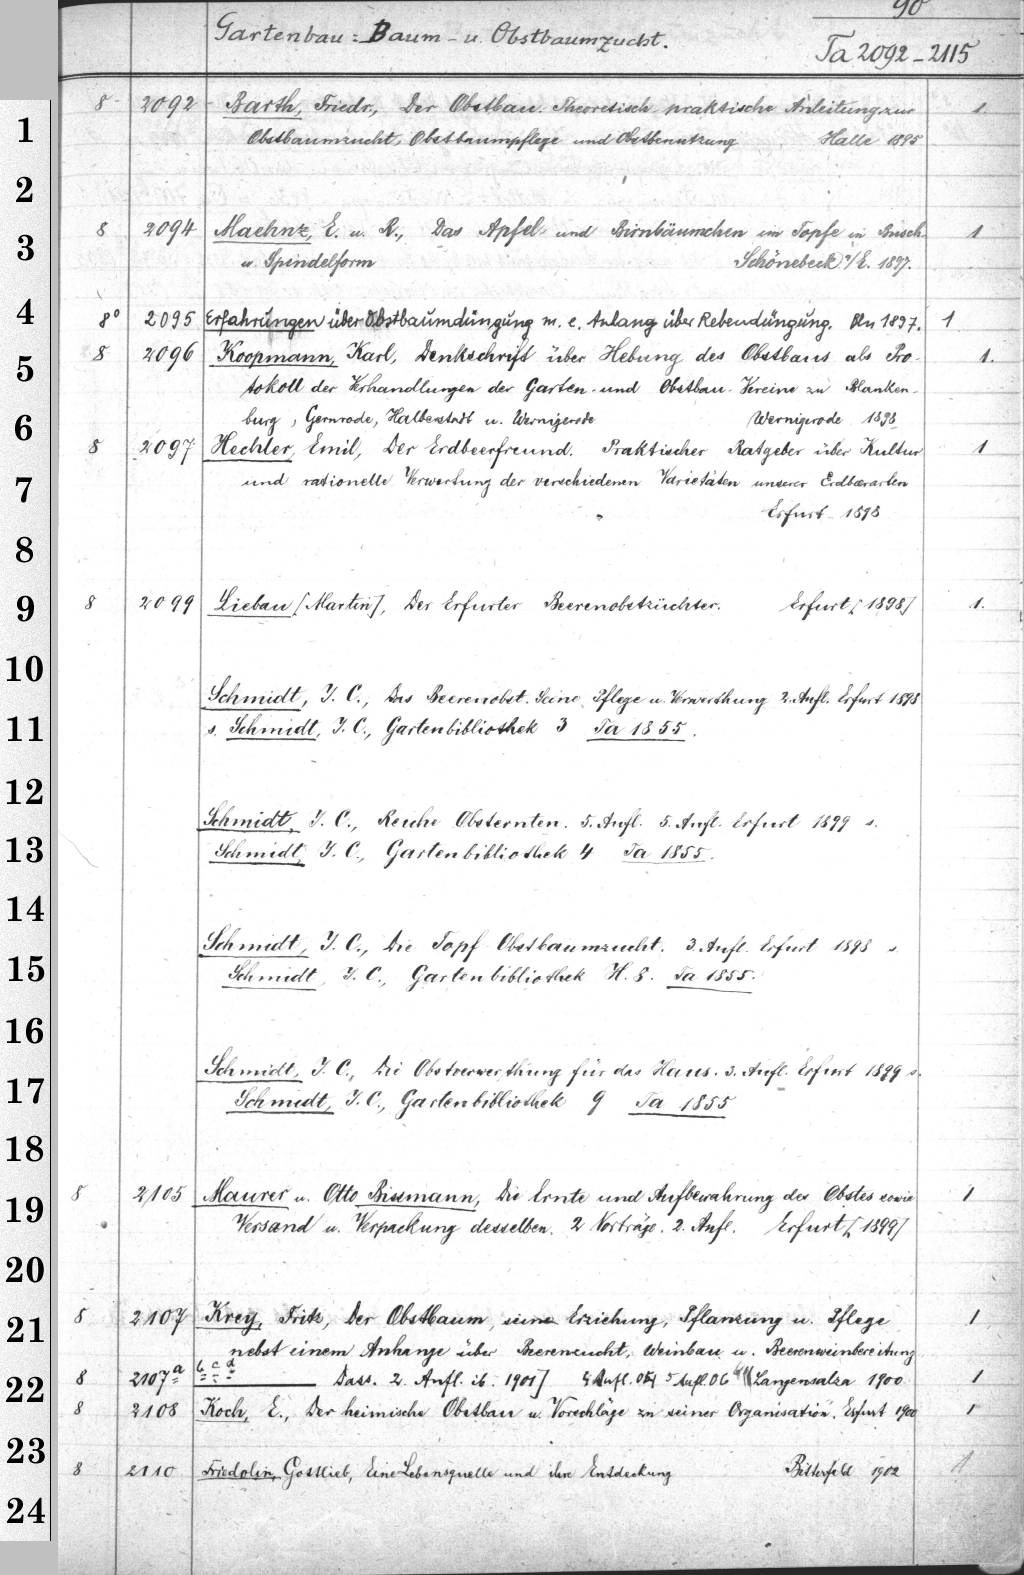 90
Gartenbau: Baum- u. Obstbaumzucht.
Ta 2092-2115
8 2092 Barth, Friedr., Der Obstbau. Theoretisch praktische Anleitung zur 1.
1
Obstbaumzucht, Obstbaumpflege und Obstbenutzung Halle 1895
2
8 2094 Maehnz, E. u. R., Das Apfel- und Birnbäumchen im Topfe in Busch- 1
3
u. Spindelform Schönebeck a/E. 1897.
4
8° 2095 Erfahrungen über Obstbaumdüngung m. e. Anhang über Rebendüngung. Bln 1897. 1
8 2096 Koopmann, Karl, Denkschrift über Hebung des Obstbaus als Pro- 1.
5
tokoll der Verhandlungen der Garten- und Obstbau-Vereine zu Blanken-
burg, Gernrode, Halberstadt u. Wernigerode Wernigerode 1898
6
8 2097 Hechler, Emil, Der Erdbeerfreund. Praktischer Ratgeber über Kultur 1
7
und rationelle Verwertung der verschiedenen Varietäten unserer Erdbeerarten
Erfurt 1898
8
9
8 2099 Liebau [Martin], Der Erfurter Beerenobstzüchter. Erfurt [1898] 1.
10
Schmidt, J. C., Das Beerenobst. Seine Pflege u. Verwerthung 2. Aufl. Erfurt 1898
11
s. Schmidt, J. C., Gartenbibliothek 3 Ta 1855.
12
Schmidt, J. C., Reiche Obsternten. 5. Aufl. 5. Aufl. Erfurt 1899 s.
13
Schmidt, J. C., Gartenbibliothek 4 Ta 1855.
14
Schmidt, J. C., Die Topf Obstbaumzucht. 3. Aufl. Erfurt 1898 s
15
Schmidt, J. C., Gartenbibliothek H. 8. Ta 1855.
16
Schmidt, J. C., Die Obstverwerthung für das Haus. 3. Aufl. Erfurt 1899 s.
17
Schmidt, J. C., Gartenbibliothek 9 Ta 1855
18
8 2105 Maurer u. Otto Bissmann, Die Ernte und Aufbewahrung des Obstes sowie 1
19
Versand u. Verpackung desselben. 2 Vorträge. 2. Aufl. Erfurt [1899]
20
8 2107 Krey, Fritz, Der Obstbaum, seine Erziehung, Pflanzung u. Pflege 1
21
nebst einem Anhange über Beerenzucht, Weinbau u. Beerenweinbereitung
8 2107 a b c d Dass. 2. Aufl. ib. 1901] 4 Aufl. 04 5 Aufl. 06 Langensalza 1900 1
22
8 2108 Koch, E., Der heimische Obstbau u. Vorschläge zu seiner Organisation. Erfurt 1900 1
23
8 2110 Friedolin, Gottlieb, Eine Lebensquelle und ihre Entdeckung Bitterfeld 1902 1
24